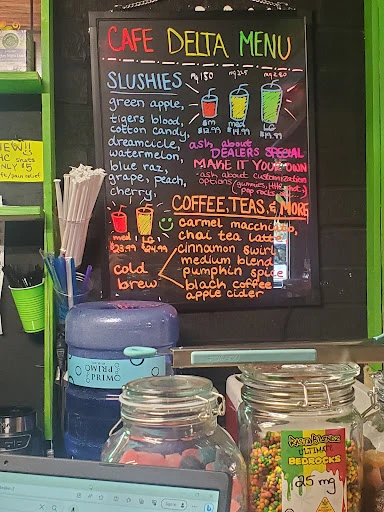 CAFE DELTA MENU
SLUSHIES
mg 150
mg 225
mg 280
green apple,
tigers blood,
cotton candy,
dreamcicle,
watermelon,
blue raz,
grape, peach,
cherry,
sm
$12.99
med
$14.99
LG
$19.99
ask about
DEALERS SPECIAL
MAKE IT YOUR OWN
-ask about customization
options (gummies, HHC shot,
pop rocks
COFFEE, TEAS, & MORE
carmel macchiato,
chai tea latte
cinnamon swirl
medium blend
pumpkin spice
black coffee
apple cider
med
$23.99
LG
$24.99
cold
brew
NEW!!
HC shots
ONLY $5
PRIMO
ULTIMATE
BEDROCKS
25 mg